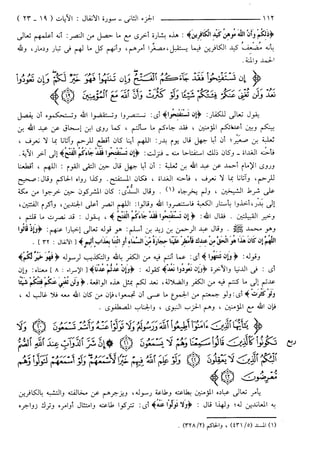 ١١٢ الجزء الثاني - سورة الأنفال : الآيات (١٩ - ٢٣)
﴿ذَٰلِكُمْ وَأَنَّ اللَّهَ مُوهِنُ كَيْدِ الْكَافِرِينَ﴾ : هذه بشارة أخرى مع ما حصل من النصر: أنه أعلمهم تعالى
بأنه مُضعِف كيد الكافرين فيما يستقبل، مصغّرا أمرهم، وأنهم كل ما لهم في تبار ودمار، ولله
الحمد والمنة.
إِن تَسْتَفْتِحُوا فَقَدْ جَاءَكُمُ الْفَتْحُ وَإِن تَنتَهُوا فَهُوَ خَيْرٌ لَّكُمْ وَإِن تَعُودُوا
نَعُدْ وَلَن تُغْنِيَ عَنكُمْ فِئَتُكُمْ شَيْئًا وَلَوْ كَثُرَتْ وَأَنَّ اللَّهَ مَعَ الْمُؤْمِنِينَ ﴿١٩﴾
يقول تعالى للكفار: ﴿إِن تَسْتَفْتِحُوا﴾ أي: تستنصروا وتستقضوا الله وتستحكموه أن يفصل
بينكم وبين أعدائكم المؤمنين، فقد جاءكم ما سألتم، كما روى ابن إسحاق عن عبد الله بن
ثعلبة بن صعير؛ أن أبا جهل قال يوم بدر: اللهم أينا كان أقطع للرحم وآتانا بما لا نعرف،
فأحنه الغداة، وكان ذلك استفتاحا منه، فنزلت: ﴿إِن تَسْتَفْتِحُوا فَقَدْ جَاءَكُمُ الْفَتْحُ﴾ إلى آخر الآية.
وروى الإمام أحمد عن عبد الله بن ثعلبة : أن أبا جهل قال حين التقى القوم : اللهم ، أقطعنا
للرحم، وآتانا بما لا نعرف، فأحنه الغداة ، فكان المستفتح. وكذا رواه الحاكم وقال: صحيح
على شرط الشيخين ، ولم يخرجاه (١) . وقال السُّدِّي: كان المشركون حين خرجوا من مكة
إلى بدر، أخذوا بأستار الكعبة فاستنصروا الله وقالوا: اللهم انصر أعلى الجندين، وأكرم الفئتين،
وخير القبيلتين. فقال الله: ﴿إِن تَسْتَفْتِحُوا فَقَدْ جَاءَكُمُ الْفَتْحُ﴾ ، يقول : قد نصرت ما قلتم ،
وهو محمد ﷺ. وقال عبد الرحمن بن زيد بن أسلم: هو قوله تعالى إخبارا عنهم: ﴿وَإِذْ قَالُوا
اللَّهُمَّ إِن كَانَ هَٰذَا هُوَ الْحَقَّ مِنْ عِندِكَ فَأَمْطِرْ عَلَيْنَا حِجَارَةً مِّنَ السَّمَاءِ أَوِ ائْتِنَا بِعَذَابٍ أَلِيمٍ﴾ [الأنفال: ٣٢].
وقوله: ﴿وَإِن تَنتَهُوا﴾ أي: عما أنتم فيه من الكفر بالله والتكذيب لرسوله ﴿فَهُوَ خَيْرٌ لَّكُمْ﴾
أي: في الدنيا والآخرة ﴿وَإِن تَعُودُوا نَعُدْ﴾ كقوله: ﴿وَإِنْ عُدتُّمْ عُدْنَا﴾ [الإسراء: ٨] معناه: وإن
عدتم إلى ما كنتم فيه من الكفر والضلالة، نعد لكم بمثل هذه الواقعة. ﴿وَلَن تُغْنِيَ عَنكُمْ فِئَتُكُمْ شَيْئًا
وَلَوْ كَثُرَتْ﴾ أي: ولو جمعتم من الجموع ما عسى أن تجمعوا، فإن من كان الله معه فلا غالب له ،
فإن الله مع المؤمنين ، وهم الحزب النبوي ، والجناب المصطفوي .
يَا أَيُّهَا الَّذِينَ آمَنُوا أَطِيعُوا اللَّهَ وَرَسُولَهُ وَلَا تَوَلَّوْا عَنْهُ وَأَنتُمْ تَسْمَعُونَ ﴿٢٠﴾ وَلَا
تَكُونُوا كَالَّذِينَ قَالُوا سَمِعْنَا وَهُمْ لَا يَسْمَعُونَ ﴿٢١﴾ إِنَّ شَرَّ الدَّوَابِّ عِندَ اللَّهِ الصُّمُّ
ربع
الْبُكْمُ الَّذِينَ لَا يَعْقِلُونَ ﴿٢٢﴾ وَلَوْ عَلِمَ اللَّهُ فِيهِمْ خَيْرًا لَّأَسْمَعَهُمْ وَلَوْ أَسْمَعَهُمْ لَتَوَلَّوا وَّهُم
مُّعْرِضُونَ ﴿٢٣﴾
يأمر تعالى عباده المؤمنين بطاعته وطاعة رسوله، ويزجرهم عن مخالفته والتشبه بالكافرين
به المعاندين له؛ ولهذا قال : ﴿وَلَا تَوَلَّوْا عَنْهُ﴾ أي: تتركوا طاعته وامتثال أوامره وترك زواجره
(١) المسند (٤٣١/٥) ، والحاكم (٣٢٨/٢).